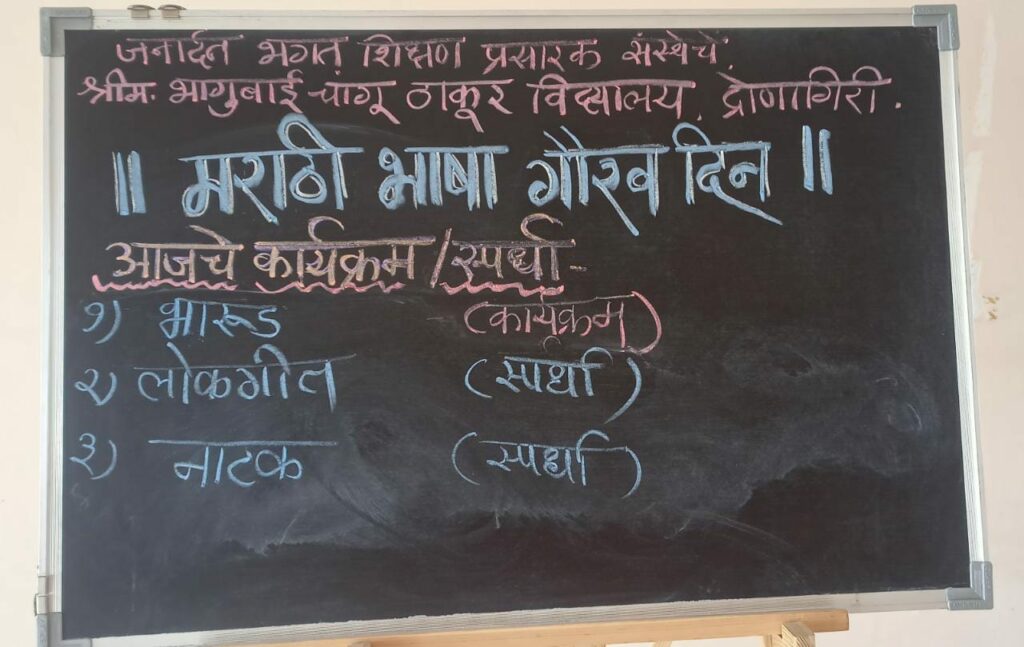 जनार्दन भगत शिक्षण प्रसारक संस्थेचे,
श्रीम. भागुबाई चांगू ठाकूर विद्यालय, द्रोणागिरी.
॥ मराठी भाषा गौरव दिन ॥
आजचे कार्यक्रम / स्पर्धा -
१) भारूड (कार्यक्रम)
२) लोकगीत (स्पर्धा)
३) नाटक (स्पर्धा)